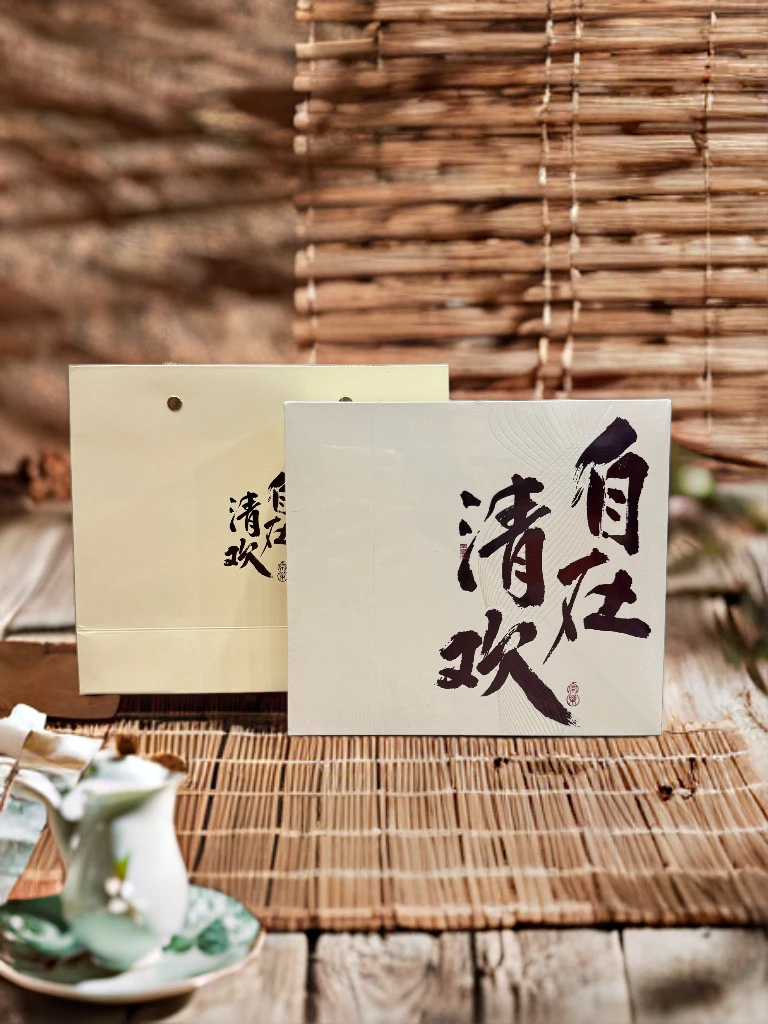 自在
清欢
自在
清欢